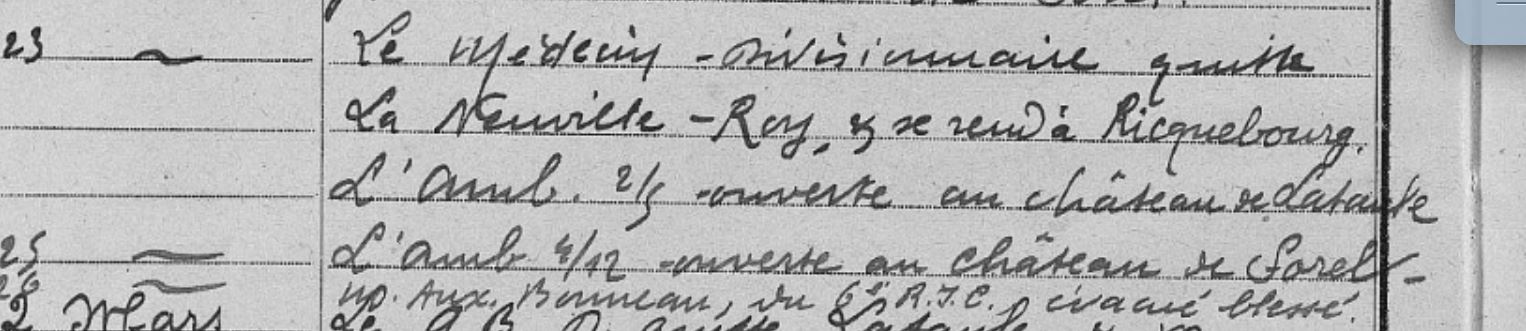 23 ~ Le Médecin-Divisionnaire quitte
La Neuville-Roy, & se rend à Ricquebourg.
L'Amb. 2/5 ouverte au château de Lataule
25 ~ L'Amb 4/12 ouverte au château de Sorel-
26 ~ Mp. Aux. Bonneau, du 6e R.I.C. évacué blessé.
2 Mars Le G. B. D. quitte Lataule